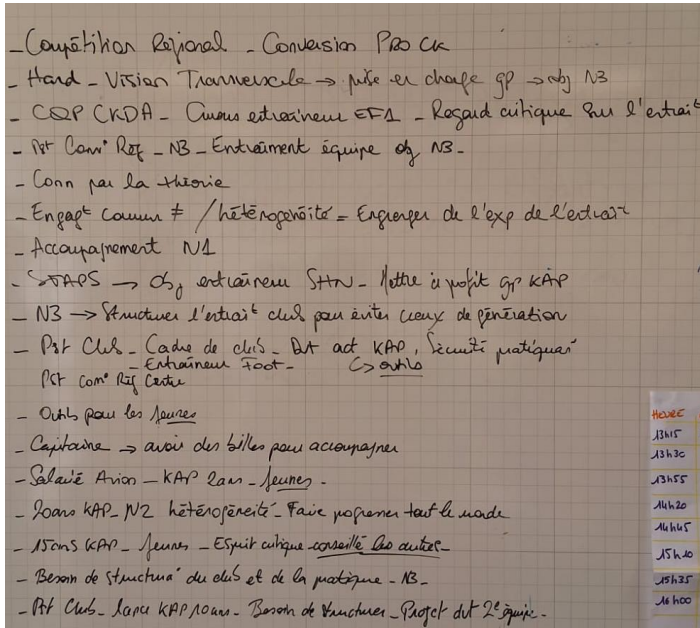 - Compétition Régional - Conversion PRO CK
- Hand - Vision Transversale → prise en charge gp → obj N3
- CQP CKDA - Cursus entraîneur EF1 - Regard critique sur l'entrait
- Pst Com° Reg - N3 - Entraîment équipe obj N3 -
- Conn par la théorie
- Engagt commun ≠ / hétérogénéité = Engranger de l'exp de l'entrait
- Accompagnement N1
- STAPS → obj entraîneur SHN - Mettre à profit gp KAP
- N3 → Structurer l'entrait club pour éviter creux de génération
- Pst Club - Cadre de club - act KAP, Sécurité pratiquant
- Entraîneur Foot - ↳ outils
Pst Com° Reg Centre
- Outils pour les jeunes
- Capitaine → avoir des billes pour accompagner
- Salarié Avion - KAP 2ans - Jeunes -
- 20ans KAP - N2 hétérogénéité - Faire progresser tout le monde
- 15ans KAP - Jeunes - Esprit critique conseillé les autres -
- Besoin de structura° du club et de la pratique - N3 -
- Pst Club - lance KAP 10ans - Besoin de structurer - Projet dvt 2e équipe -
HEURE
13h15
13h30
13h55
14h20
14h45
15h10
15h35
16h00